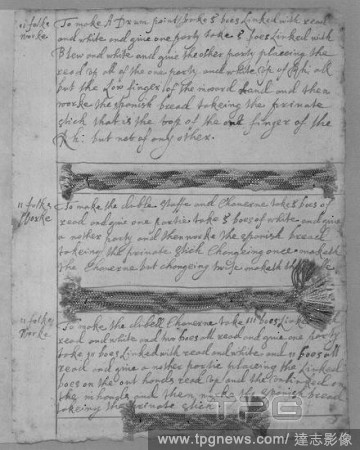 11 folke
Worke
To make A Drum point take 5 boes Linked with read
and white and giue one party take 5 boes Linked with
Blew and white and giue the other party placeing the
read up all of the one party and white up of all
but the Low finger of the inward hand and then
worke the spanish bread takeing the priuate
stich that is the top of the one finger of the
but not of any other.
11 folke
Worke
To make the duble take 5 boes of
read and giue one partie take 5 boes of white and giue
a nother party and then worke the spanish bread
takeing the priuate stich Changeing once maketh
the Cheuerne but changeing twice maketh the
11 folke
Worke
To make the dubell Cheuerne take III boes Linked
read and white and two boes all read and giue one party
take 30 boes Linked with read and white and 20 boes all
read and giue a nother partie placeing the Linked
boes on the out hands read up and the
and then the spanish bread
takeing the priuate stich
TPG
www.tpgnews.com / 達志影像